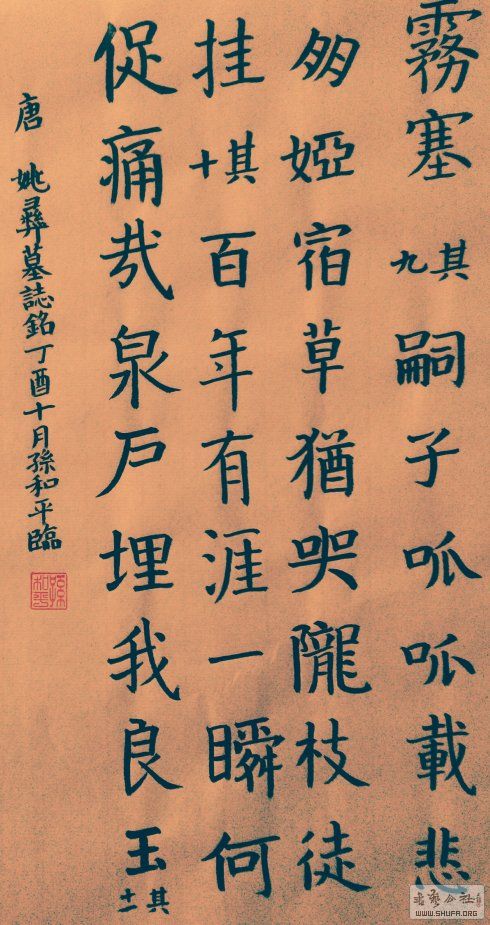 霧塞其九嗣子呱呱載悲
朋婭宿草猶哭隴枝徒
挂其十百年有涯一瞬何
促痛哉泉戶埋我良玉其十一
唐 姚彝墓誌銘丁酉十月孫和平臨
WWW.SHUFA.ORG